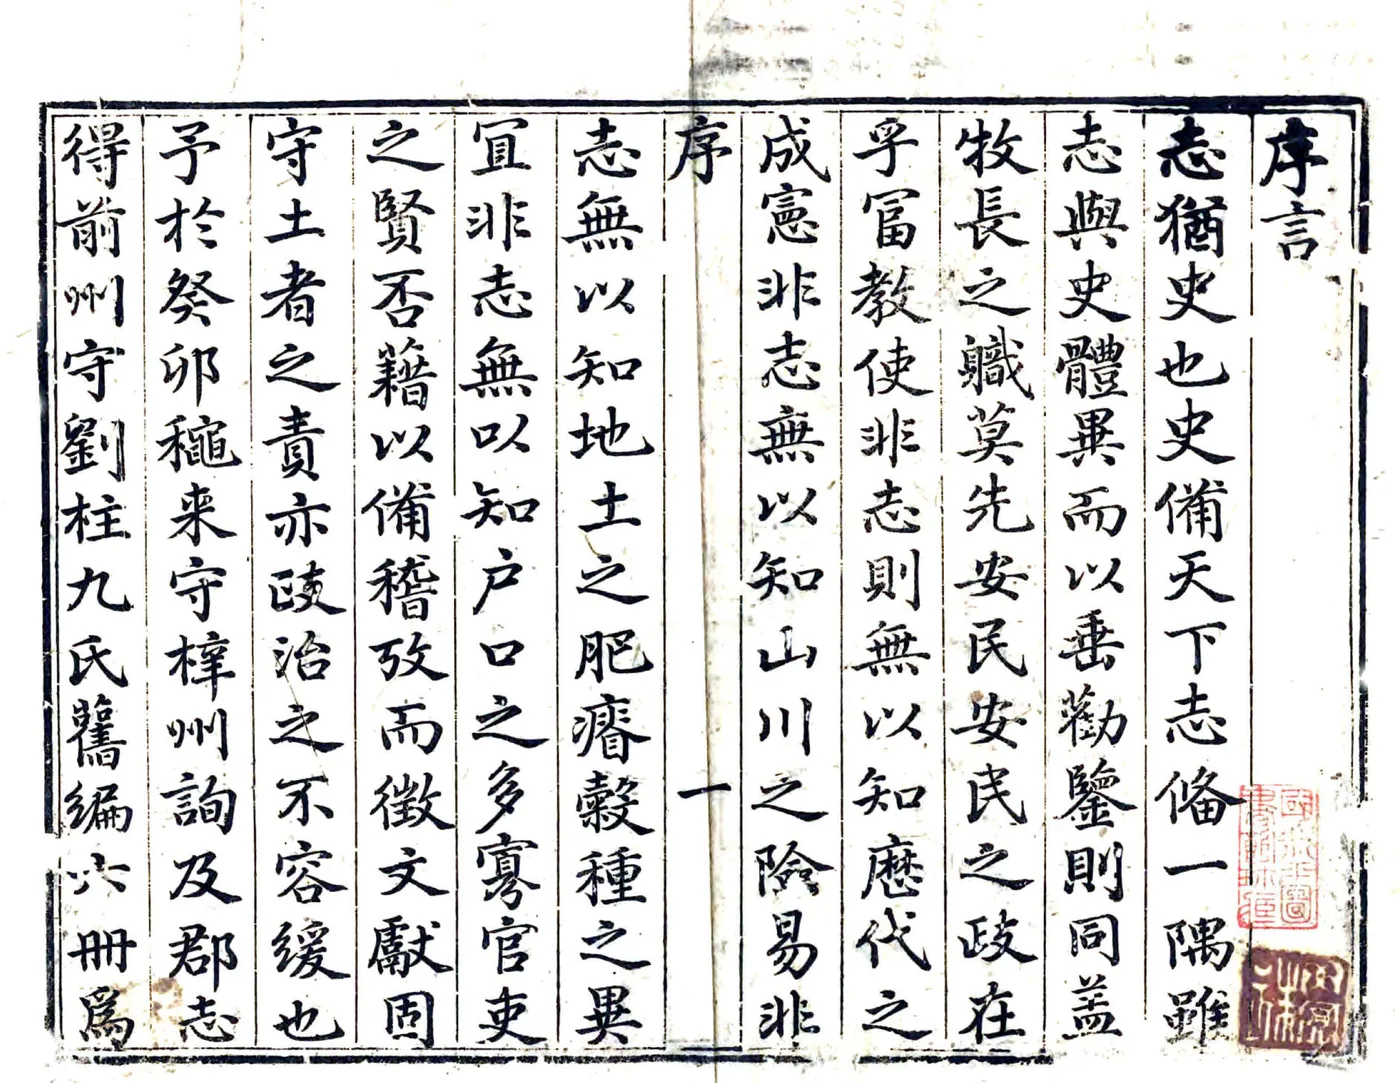 序言
志猶史也史備天下志俻一隅雖
志與史體異而以垂勸鑒則同蓋
牧長之職莫先安民安民之政在
孚冨教使非志則無以知歴代之
成憲非志無以知山川之險易非
序 一
志無以知地土之肥瘠穀種之異
冝非志無以知户口之多寡官吏
之賢否藉以備稽攷而徵文獻固
守土者之責亦政治之不容緩也
予於癸卯穐来守梓州詢及郡志
得前州守劉柱九氏舊编六册爲